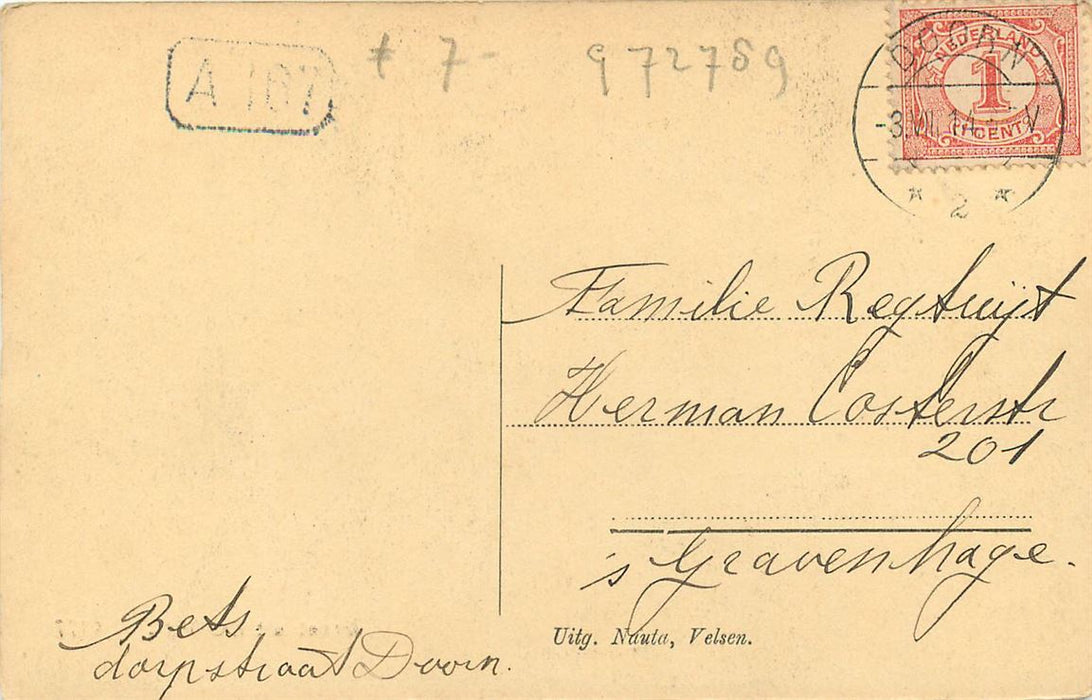 A 167
+ 7 - 972789
DOORN
NEDERLAND
1
CENT
-3.VII.14. V
* 2 *
Familie Regtuijt
Herman Costerstr
201
's Gravenhage.
Bets
dorpstraat Doorn.
Uitg. Nauta, Velsen.